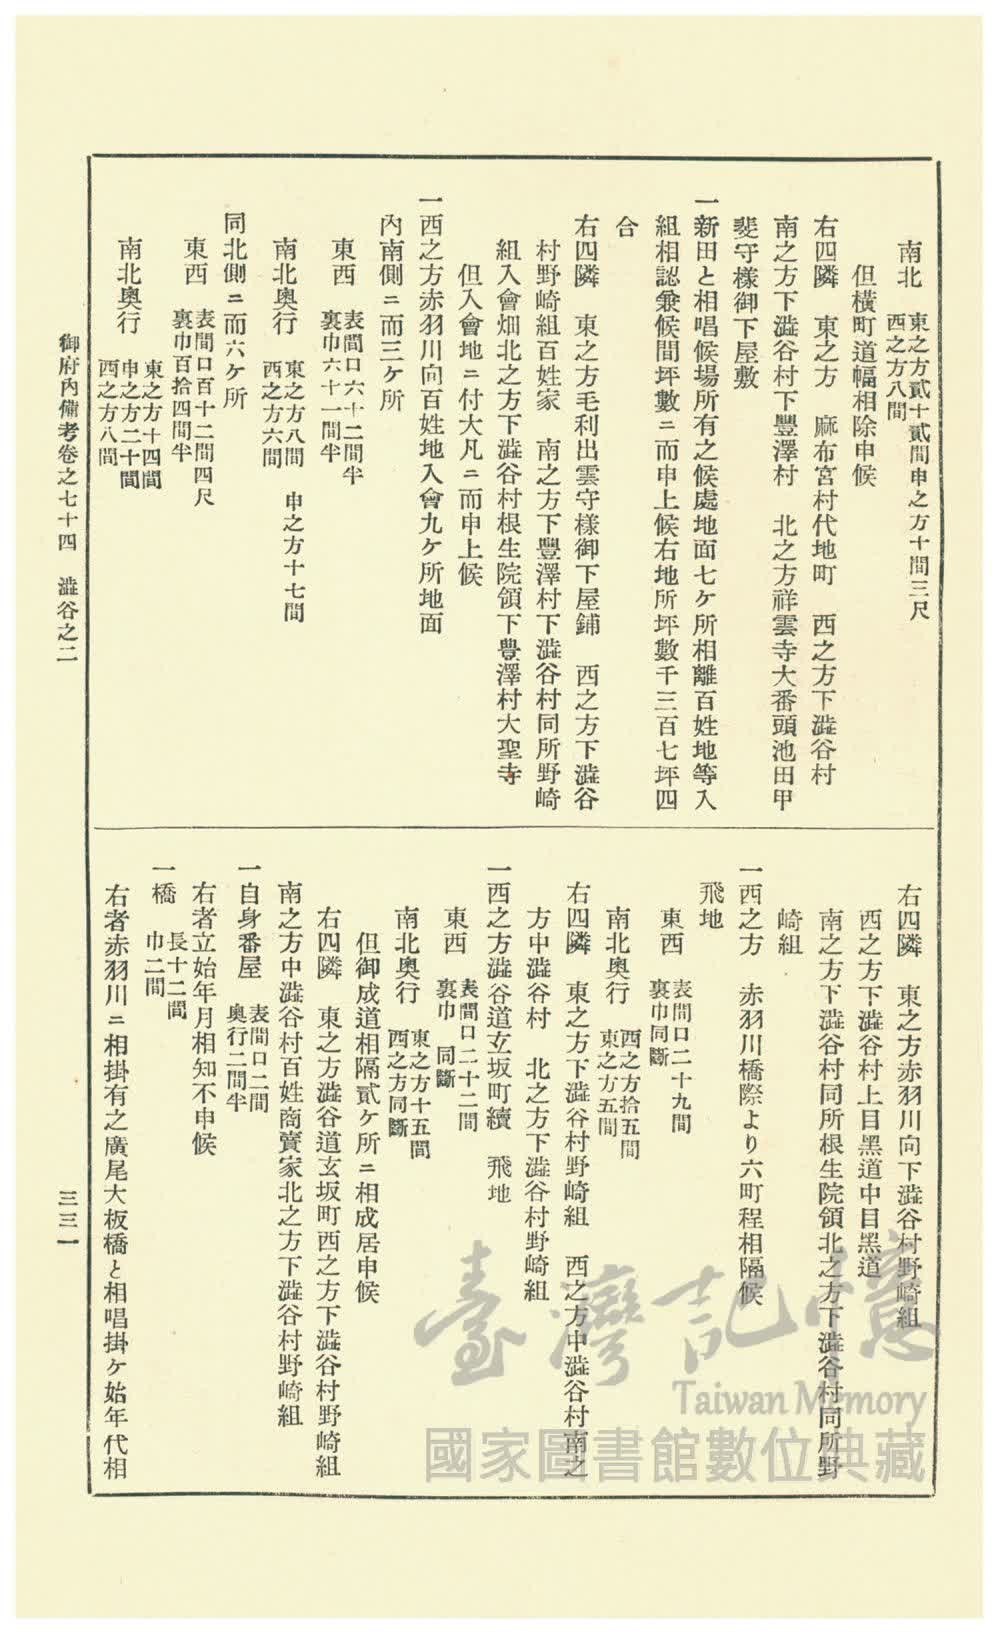 南北 東之方貳十貳間申之方十間三尺
西之方八間
但橫町道幅相除申候
右四隣 東之方 麻布宮村代地町 西之方下澁谷村
南之方下澁谷村下豐澤村 北之方祥雲寺大番頭池田甲
斐守樣御下屋敷
一新田と相唱候場所有之候處地面七ケ所相離百姓地等入
組相認兼候間坪數ニ而申上候右地所坪數千三百七坪四
合
右四隣 東之方毛利出雲守樣御下屋鋪 西之方下澁谷
村野崎組百姓家 南之方下豐澤村下澁谷村同所野崎
組入會畑北之方下澁谷村根生院領下豊澤村大聖寺
但入會地ニ付大凡ニ而申上候
一西之方赤羽川向百姓地入會九ケ所地面
內南側ニ而三ケ所
東西 表間口六十二間半
裏巾六十一間半
南北奧行 東之方八間 申之方十七間
西之方六間
同北側ニ而六ケ所
東西 表間口百十二間四尺
裏巾百拾四間半
南北奧行 東之方十四間
申之方二十間
西之方八間
右四隣 東之方赤羽川向下澁谷村野崎組
西之方下澁谷村上目黑道中目黑道
南之方下澁谷村同所根生院領北之方下澁谷村同所野
崎組
一西之方 赤羽川橋際より六町程相隔候
飛地
東西 表間口二十九間
裏巾同斷
南北奧行 西之方拾五間
東之方五間
右四隣 東之方下澁谷村野崎組 西之方中澁谷村南之
方中澁谷村 北之方下澁谷村野崎組
一西之方澁谷道玄坂町續 飛地
東西 表間口二十二間
裏巾 同斷
南北奧行 東之方十五間
西之方同斷
但御成道相隔貳ケ所ニ相成居申候
右四隣 東之方澁谷道玄坂町西之方下澁谷村野崎組
南之方中澁谷村百姓商賣家北之方下澁谷村野崎組
一自身番屋 表間口二間
奧行二間半
右者立始年月相知不申候
一橋 長十二間
巾二間
右者赤羽川ニ相掛有之廣尾大板橋と相唱掛ケ始年代相
御府內備考卷之七十四 澁谷之二
三三一
臺灣記憶
Taiwan Memory
國家圖書館數位典藏